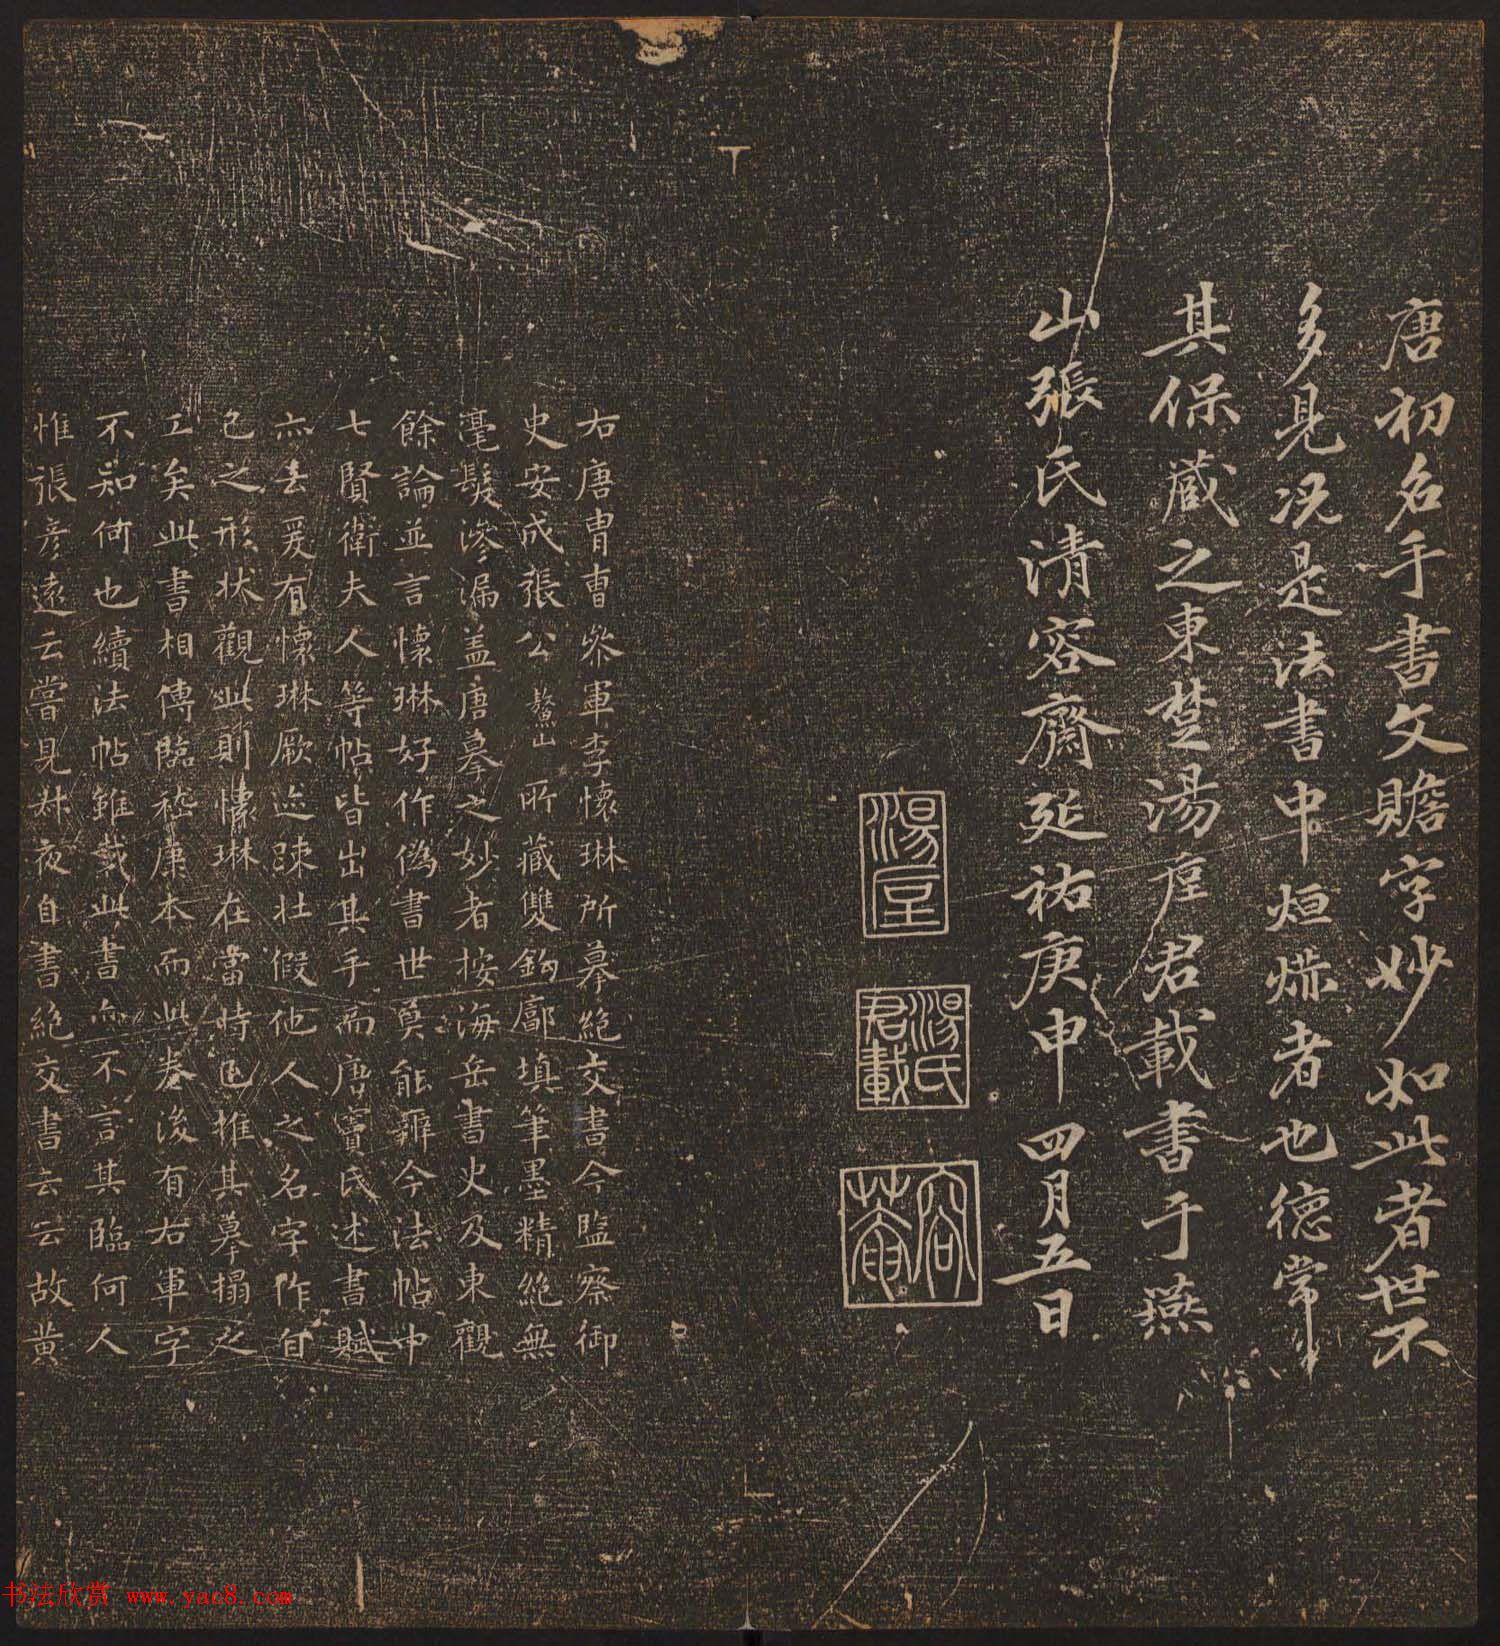 唐初名手書文贍字妙如此者世不
多見況是法書中烜爀者也德常
其保藏之東楚湯垕君載書于燕
山張氏清容齋延祐庚申四月五日
湯垕
湯氏君載
容菴
右唐冑曹叅軍李懷琳所摹絶交書今監察御
史安成張公鼇山所藏雙鈎廓填筆墨精絶無
毫髮滲漏盖唐摹之妙者按海岳書史及東觀
餘論並言懷琳好作偽書世莫能辯今法帖中
七賢衛夫人等帖皆出其手而唐竇氏述書賦
亦云爰有懷琳厥迹踈壯假他人之名字作自
己之形狀觀此則懷琳在當時已推其摹搨之
工矣此書相傳臨嵇康本而此卷後有右軍字
不知何也續法帖雖載此書而不言其臨何人
惟張彦遠云嘗見叔夜自書絶交書云云故黄
书法欣赏 www.yac8.com